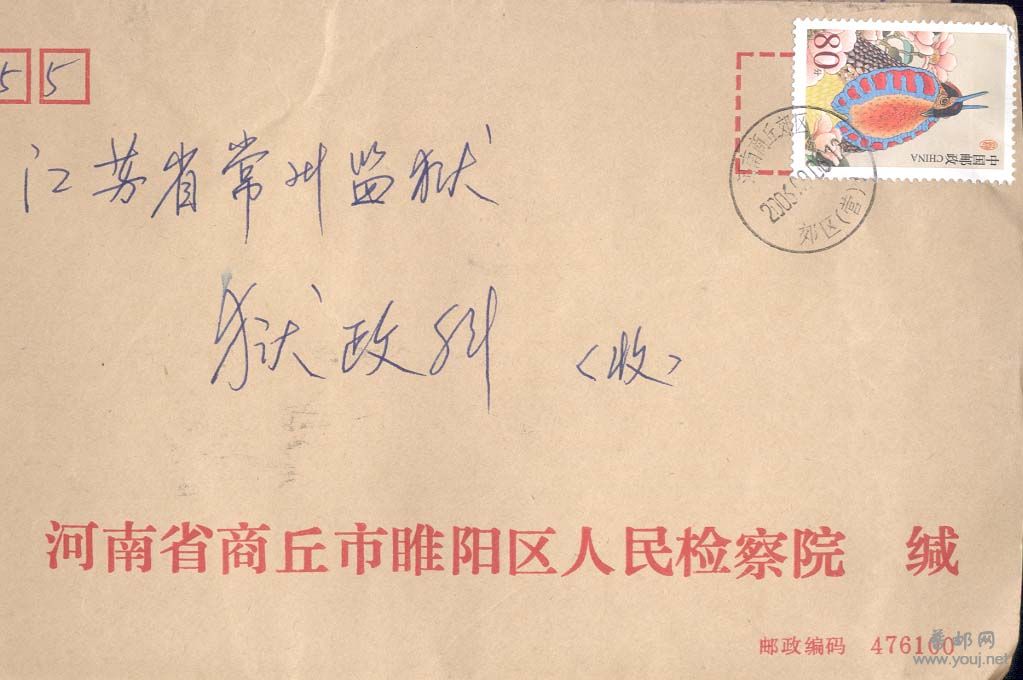 5 5
80分
中国邮政 CHINA
河南商丘郊区
郊区(营)
江苏省常州监狱
狱政科 (收)
河南省商丘市睢阳区人民检察院 缄
邮政编码 476100
旧邮网
www.youj.net